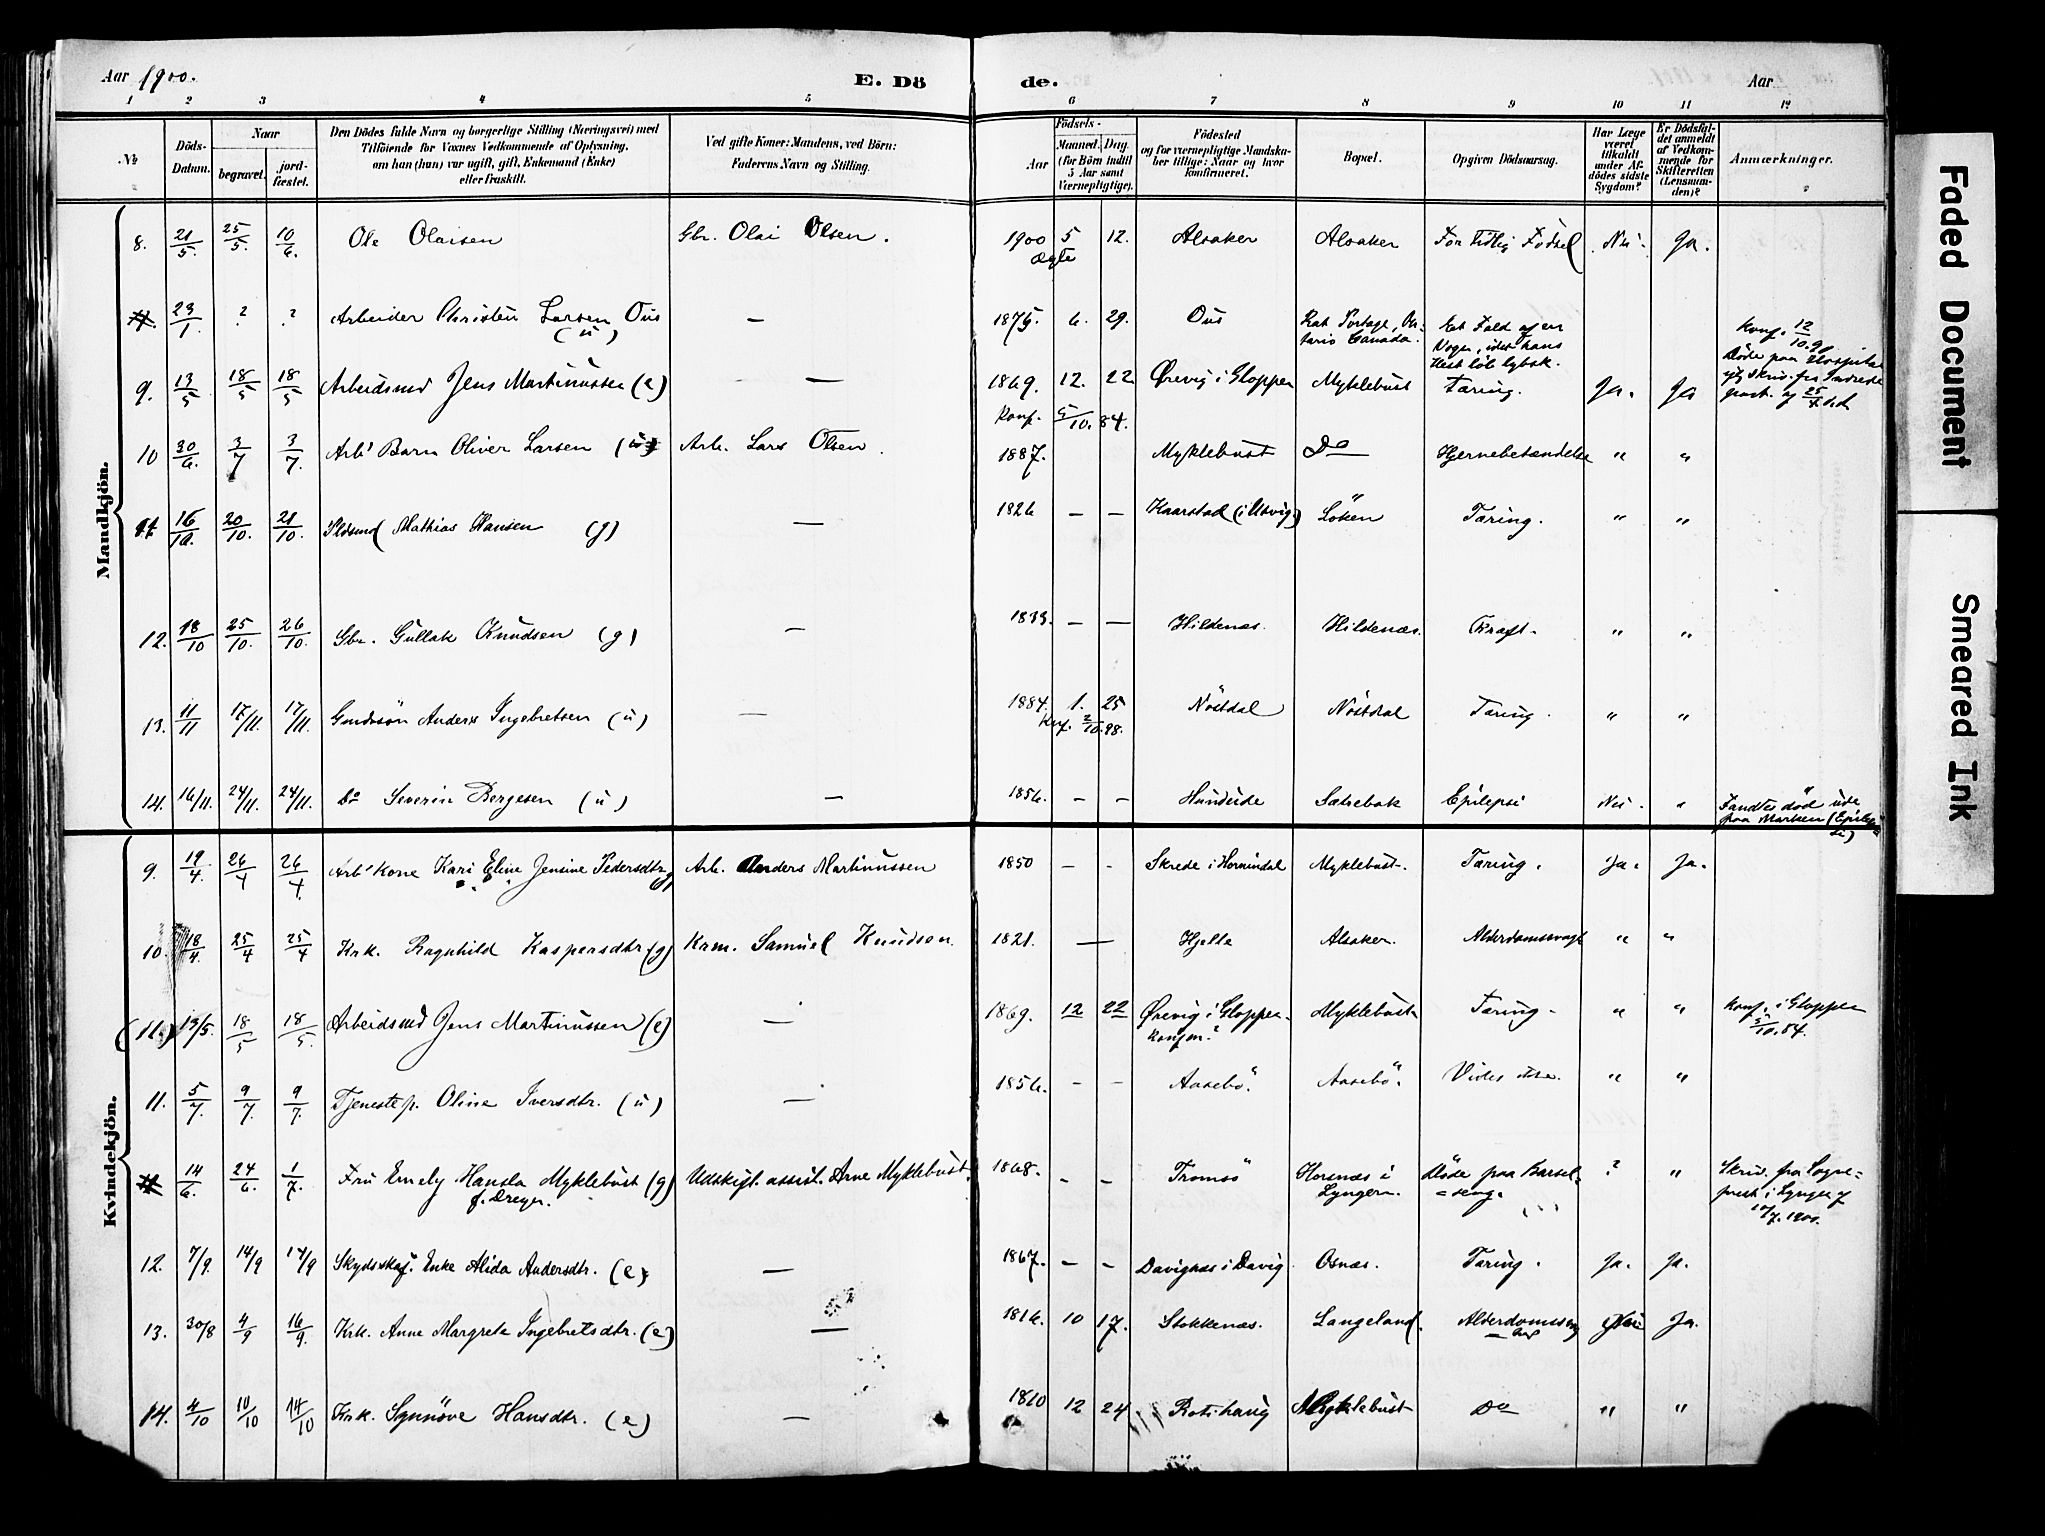 Aar 1900. E. Dö de. Aar
1 2 3 4 5 6 7 8 9 10 11 12
No
Döds-Datum.
Naar
begravet.
jord-fæstet.
Den Dödes fulde Navn og borgerlige Stilling (Næringsvei) med
Tilföiende for Voxnes Vedkommende af Oplysning,
om han (hun) var ugift, gift, Enkemand (Enke)
eller fraskilt.
Ved gifte Koner: Mandens, ved Börn:
Faderens Navn og Stilling.
Födsels-
Aar
Maaned. Dag.
(for Börn indtil
5 Aar samt
Værnepligtige).
Födested
og for værnepligtige Mandska-
ber tillige: Naar og hvor
konfirmeret.
Bopæl.
Opgiven Dödsaarsag.
Har Læge
været
tilkaldt
under Af-
dödes sidste
Sygdom?
Er Dödsfal-
det anmeldt
af Vedkom-
mende for
Skifteretten
(Lensman-
den)?
Anmærkninger.
Mandkjön.
8. 21/5 25/5. 10/6. Ole Olaisen Gbr. Olai Olsen. 1900 5 12. Alsaker Alsaker For tidlig Födsel Nei. Ja.
ægte
23/1. ? ? Arbeider Christen Larsen Ous — 1875. 6. 29. Ous Rat Portage, On-
(u) tario Canada. Et Fald af en
Vogn, idet hans
Hest löb lybsk.
Konf. 12/10.90
Döde paa Hospital
9. 13/5 18/5 18/5 Arbeidsmd Jens Martinussen (e) — 1869. 12. 22 Ørevig i Gloppen Myklebust Tæring. Ja. Ja
Konf. 5/10.84.
10 30/6. 3/7 3/7. Arbs Barn Oliver Larsen (u) Arb. Lars Olsen. 1887. Myklebust Do Hjernebetændelse " "
11 16/10. 20/10. 21/10. Mathias Hansen (g) — 1826 — — Kaarstad (i Utvig) Löken Tæring. " "
12. 18/10 25/10. 26/10. Gbr. Gullak Knudsen (g) — 1833. — — Hildenæs. Hildenæs. Kræft. " "
13. 11/11 17/11. 17/11. Gmdssön Anders Ingebretsen (u) — 1884. 1. 25 Nöstdal Nöstdal Tæring. " "
Knf. 2/10.98.
14. 16/11. 24/11. 24/11. Do Severin Bergesen (u) — 1856. — — Hundeide Sætrebak Epilepsi Nei. " Fandtes död ude
paa Marken (Epilep-
si)
Kvindekjön.
9. 19/4. 26/4 26/4. Arbs Kone Kari Eline Jensine Pedersdtr. (g) Arb. Anders Martinussen 1850 — - Skrede i Hornindal Myklebust. Tæring. Ja. Ja.
10. 18/4. 25/4 25/4 Krk. Ragnhild Kaspersdtr (g) Krm. Samuel Knudsen. 1821. — Hjelle Alsaker. Alderdomssvagh " "
(11.) 13/5. 18/5 18/5. Arbeidsmd Jens Martinussen (e) — 1869. 12 22 Ørevig i Gloppen. Myklebust Tæring. " " Konf. i Gloppen
konfm.? 5/10.84.
11. 5/7. 9/7. 9/7. Tjenestep. Oline Iversdtr. (u) — 1856. - - Aasebö. Aasebö. " "
14/6. 24/6. 1/7. Fru Emely Hansla Myklebust (g) Udskift. assist. Arne Myklebust. 1868. - - Tromsö Horsnæs i Döde paa Barsel- ? " Skriv. fra Sogne-
f. Dreyer. Lyngen. =seng. prest i Lyngen af
10/7. 1900.
12. 7/9. 14/9 14/9 Skydsskaf. Enke Alida Andersdtr. (e) — 1867. — — Davignes i Davig Osnæs. Tæring. Ja. Ja.
13. 30/8 4/9 16/9. Krk. Anne Margreta Ingebretsdtr. (e) — 1816. 10 17. Stokkenæs. Langeland. Alderdomssvag= Nei Ja.
hed
14. 4/10 10/10 14/10 Krk. Synnöve Hansdtr. (e) — 1810 12 24 Rotihaug Myklebust Do " "
Faded Document
Smeared Ink